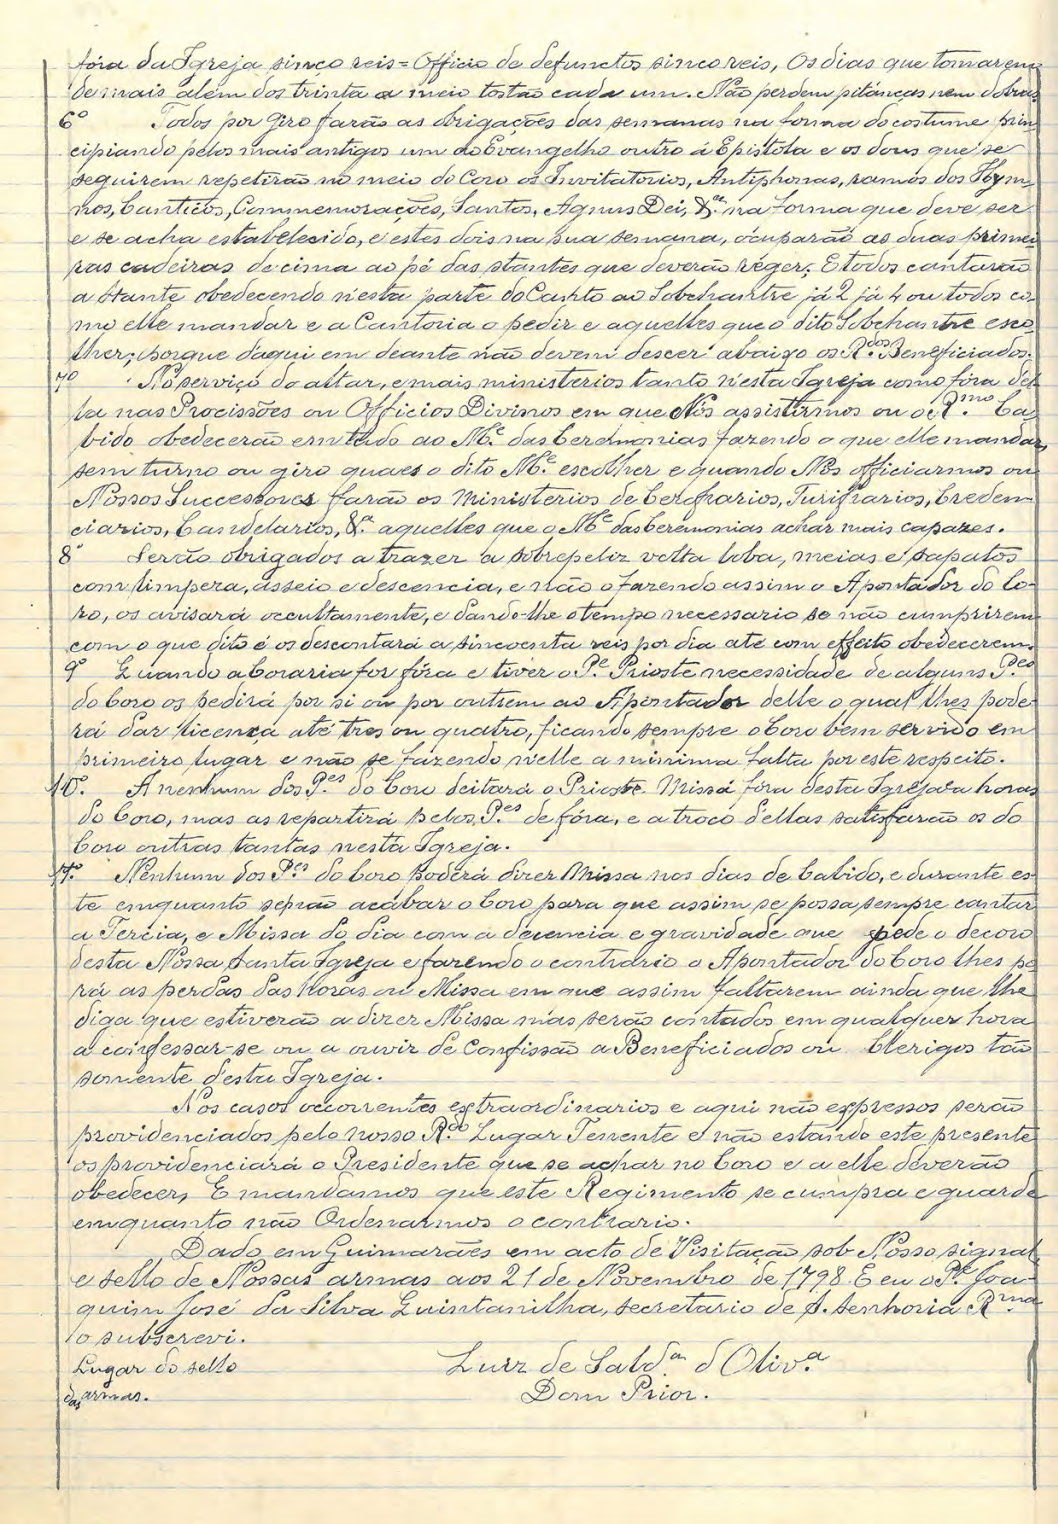 fóra da Igreja sinco reis = Officio de defunctos sinco reis, Os dias que tomarem
de mais alem dos trinta a meio tostão cada um. Não perdem pitanças nem dobras
6º Todos por giro farão as obrigações das semanas na forma do costume prin-
cipiando pelos mais antigos um ao Evangelho outro á Epistola e os dous que se
seguirem repetirão no meio do Coro os Invitatorios, Antiphonas, ramos dos Hym-
nos, Canticos, Commemorações, Santos, Agnus Dei, &ª na forma que deve ser
e se acha estabelecido, e estes dois na sua semana, ocuparão as duas primei-
ras cadeiras de cima ao pé das stantes que deverão réger; E todos cantarão
a Stante obedecendo n'esta parte do Canto ao Sobchantre já 2 já 4 ou todos co-
mo elle mandar e a Cantoria o pedir e aquelles que o dito Sobchantre esco-
lher; porque d'aqui em deante não devem descer abaixo os R.dos Beneficiados.
7º No serviço do altar, e mais ministerios tanto n'esta Igreja como fóra del-
la nas Procissões ou Officios Divinos em que Nós assistirmos ou o R.mo Ca-
bido obedecerão em tudo ao M.e das Ceremonias fazendo o que elle mandar,
sem turno ou giro quaes o dito M.e escolher e quando Nós officiarmos ou
Nossos Successores farão os Ministerios de Cerofrarios, Turifrarios, Creden-
ciarios, Candelarios, &ª aquelles que o M.e das Ceremonias achar mais capazes.
8º Serão obrigados a trazer a sobrepeliz volta loba, meias e sapatos
com limpeza, asseio e descencia, e não o fazendo assim o Apontador do Co-
ro, os avisará occultamente, e dando-lhe o tempo necessario se não cumprirem
com o que dito é os descontará a sincoenta reis por dia até com effeito obedecerem.
9º Quando a Coraria for fóra e tiver o P.e Prioste necessidade de alguns P.es
do Coro os pedirá por si ou por outrem ao Apontador delle o qual lhes pode-
rá dar licença até tres ou quatro, ficando sempre o Coro bem servido em
primeiro lugar e não se fazendo n'elle a minima falta por este respeito.
10º. A nenhum dos P.es do Coro deitará o Prioste Missa fóra desta Igreja a horas
do Coro, mas as repartirá pelos P.es de fóra, e a troco d'ellas satisfarão os do
Coro outras tantas nesta Igreja.
11º. Nenhum dos P.es do Coro poderá dizer Missa nos dias de Cabido, e durante es-
te emquanto se não acabar o Coro para que assim se possa sempre cantar
a Tercia, e Missa do dia com a decencia e gravidade que pede o decoro
desta Nossa Santa Igreja e fazendo o contrario o Apontador do Coro lhes po-
rá as perdas das horas ou Missa em que assim faltarem ainda que lhe
diga que estiverão a dizer Missa mas serão contados em qualquer hora
a confessar-se ou a ouvir de Confissão a Beneficiados ou Clerigos tão
somente desta Igreja.
Nos casos occorrentes extraordinarios e aqui não expressos serão
providenciados pelo nosso R.do Lugar Tenente e não estando este presente
os providenciará o Presidente que se achar no Coro e a elle deverão
obedecer, E mandamos que este Regimento se cumpra e guarde
emquanto não Ordenarmos o contrario.
Dado em Guimarães em acto de Visitação sob Nosso signal
e sello de Nossas armas aos 21 de Novembro de 1798. E eu o P.e Joa-
quim José da Silva Quintanilha, secretario de S. Senhoria R.ma
o subscrevi.
Lugar do sello
das armas.
Luiz de Sald.ª d'Oliv.ª
Dom Prior.